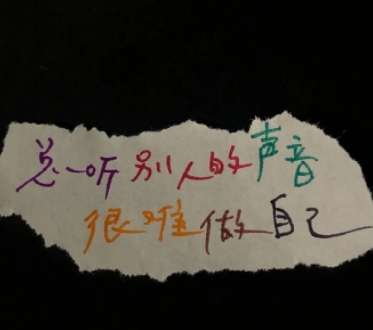 总听别人的声音
很难做自己